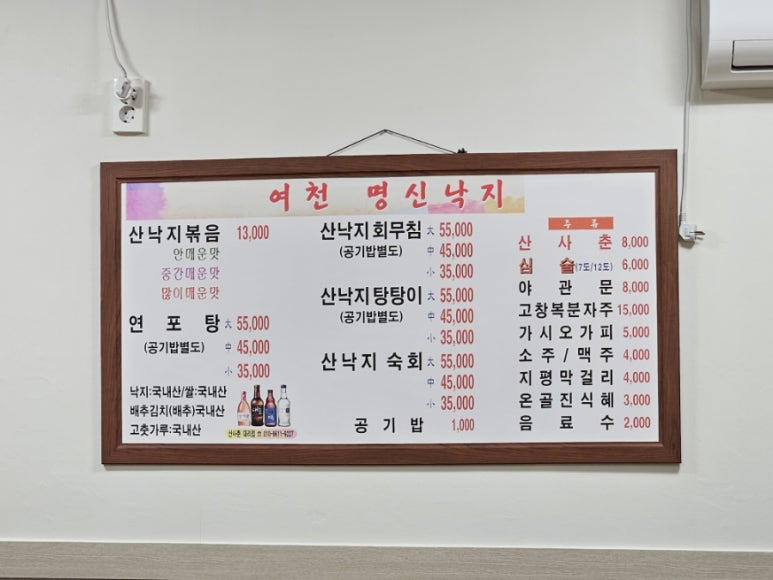 여천 명신낙지
산낙지볶음 13,000
안매운맛
중간매운맛
많이매운맛
연포탕 大 55,000
(공기밥별도) 中 45,000
小 35,000
낙지:국내산/쌀:국내산
배추김치(배추)국내산
고춧가루:국내산
산낙지회무침 大 55,000
(공기밥별도) 中 45,000
小 35,000
산낙지탕탕이 大 55,000
(공기밥별도) 中 45,000
小 35,000
산낙지 숙회 大 55,000
中 45,000
小 35,000
공기밥 1,000
주류
산사춘 8,000
심술(7도/12도) 6,000
야관문 8,000
고창복분자주 15,000
가시오가피 5,000
소주/맥주 4,000
지평막걸리 4,000
온골진식혜 3,000
음료수 2,000